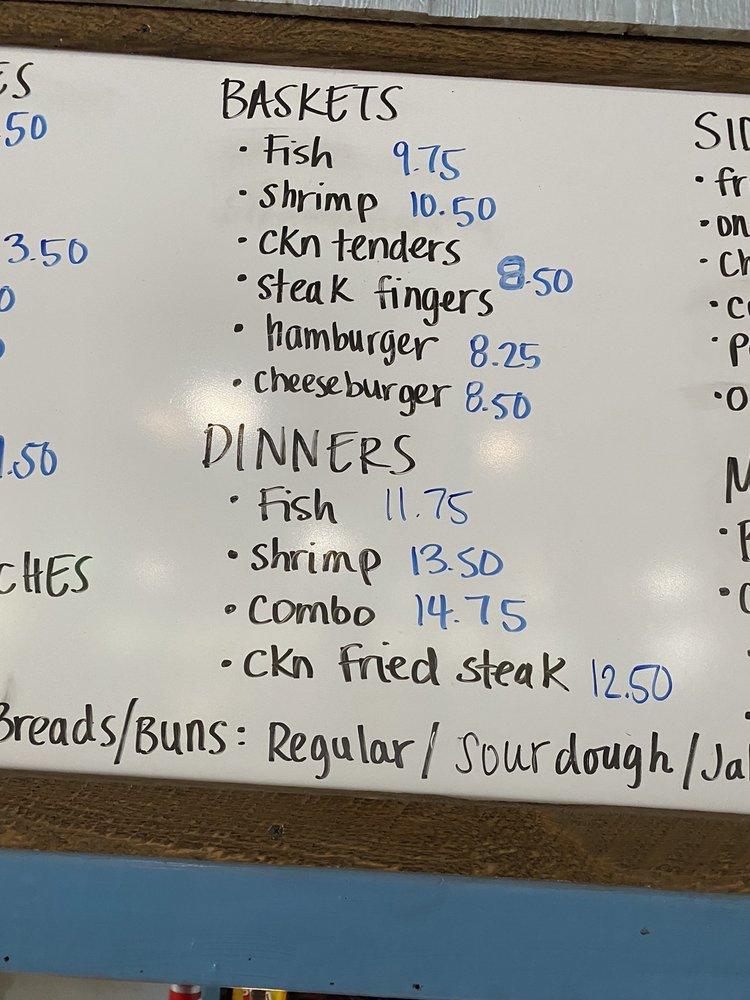 BASKETS
• Fish 9.75
• shrimp 10.50
• ckn tenders
• steak fingers 8.50
• hamburger 8.25
• cheeseburger 8.50
DINNERS
• Fish 11.75
• shrimp 13.50
• combo 14.75
• ckn fried steak 12.50
Breads/Buns: Regular/ Sourdough/Jal
ES
.50
3.50
0
.50
CHES
SID
• fr
• on
• ch
• P
• O
M